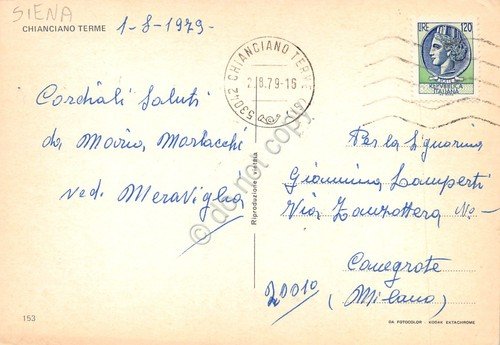 SIENA
CHIANCIANO TERME
1-8-1979-
53042 CHIANCIANO TERME (SI)
2.8.79-16
LIRE 120
REPVBBLICA
ITALIANA
Cordiali Saluti
da Maria Marlacchi
ved. Meraviglia
Riproduzione vietata
do not copy
Per la Signorina
Giannina Lamperti
Via Zanzottera No-
Canegrate
20010 (Milano)
153
DA FOTOCOLOR KODAK EKTACHROME